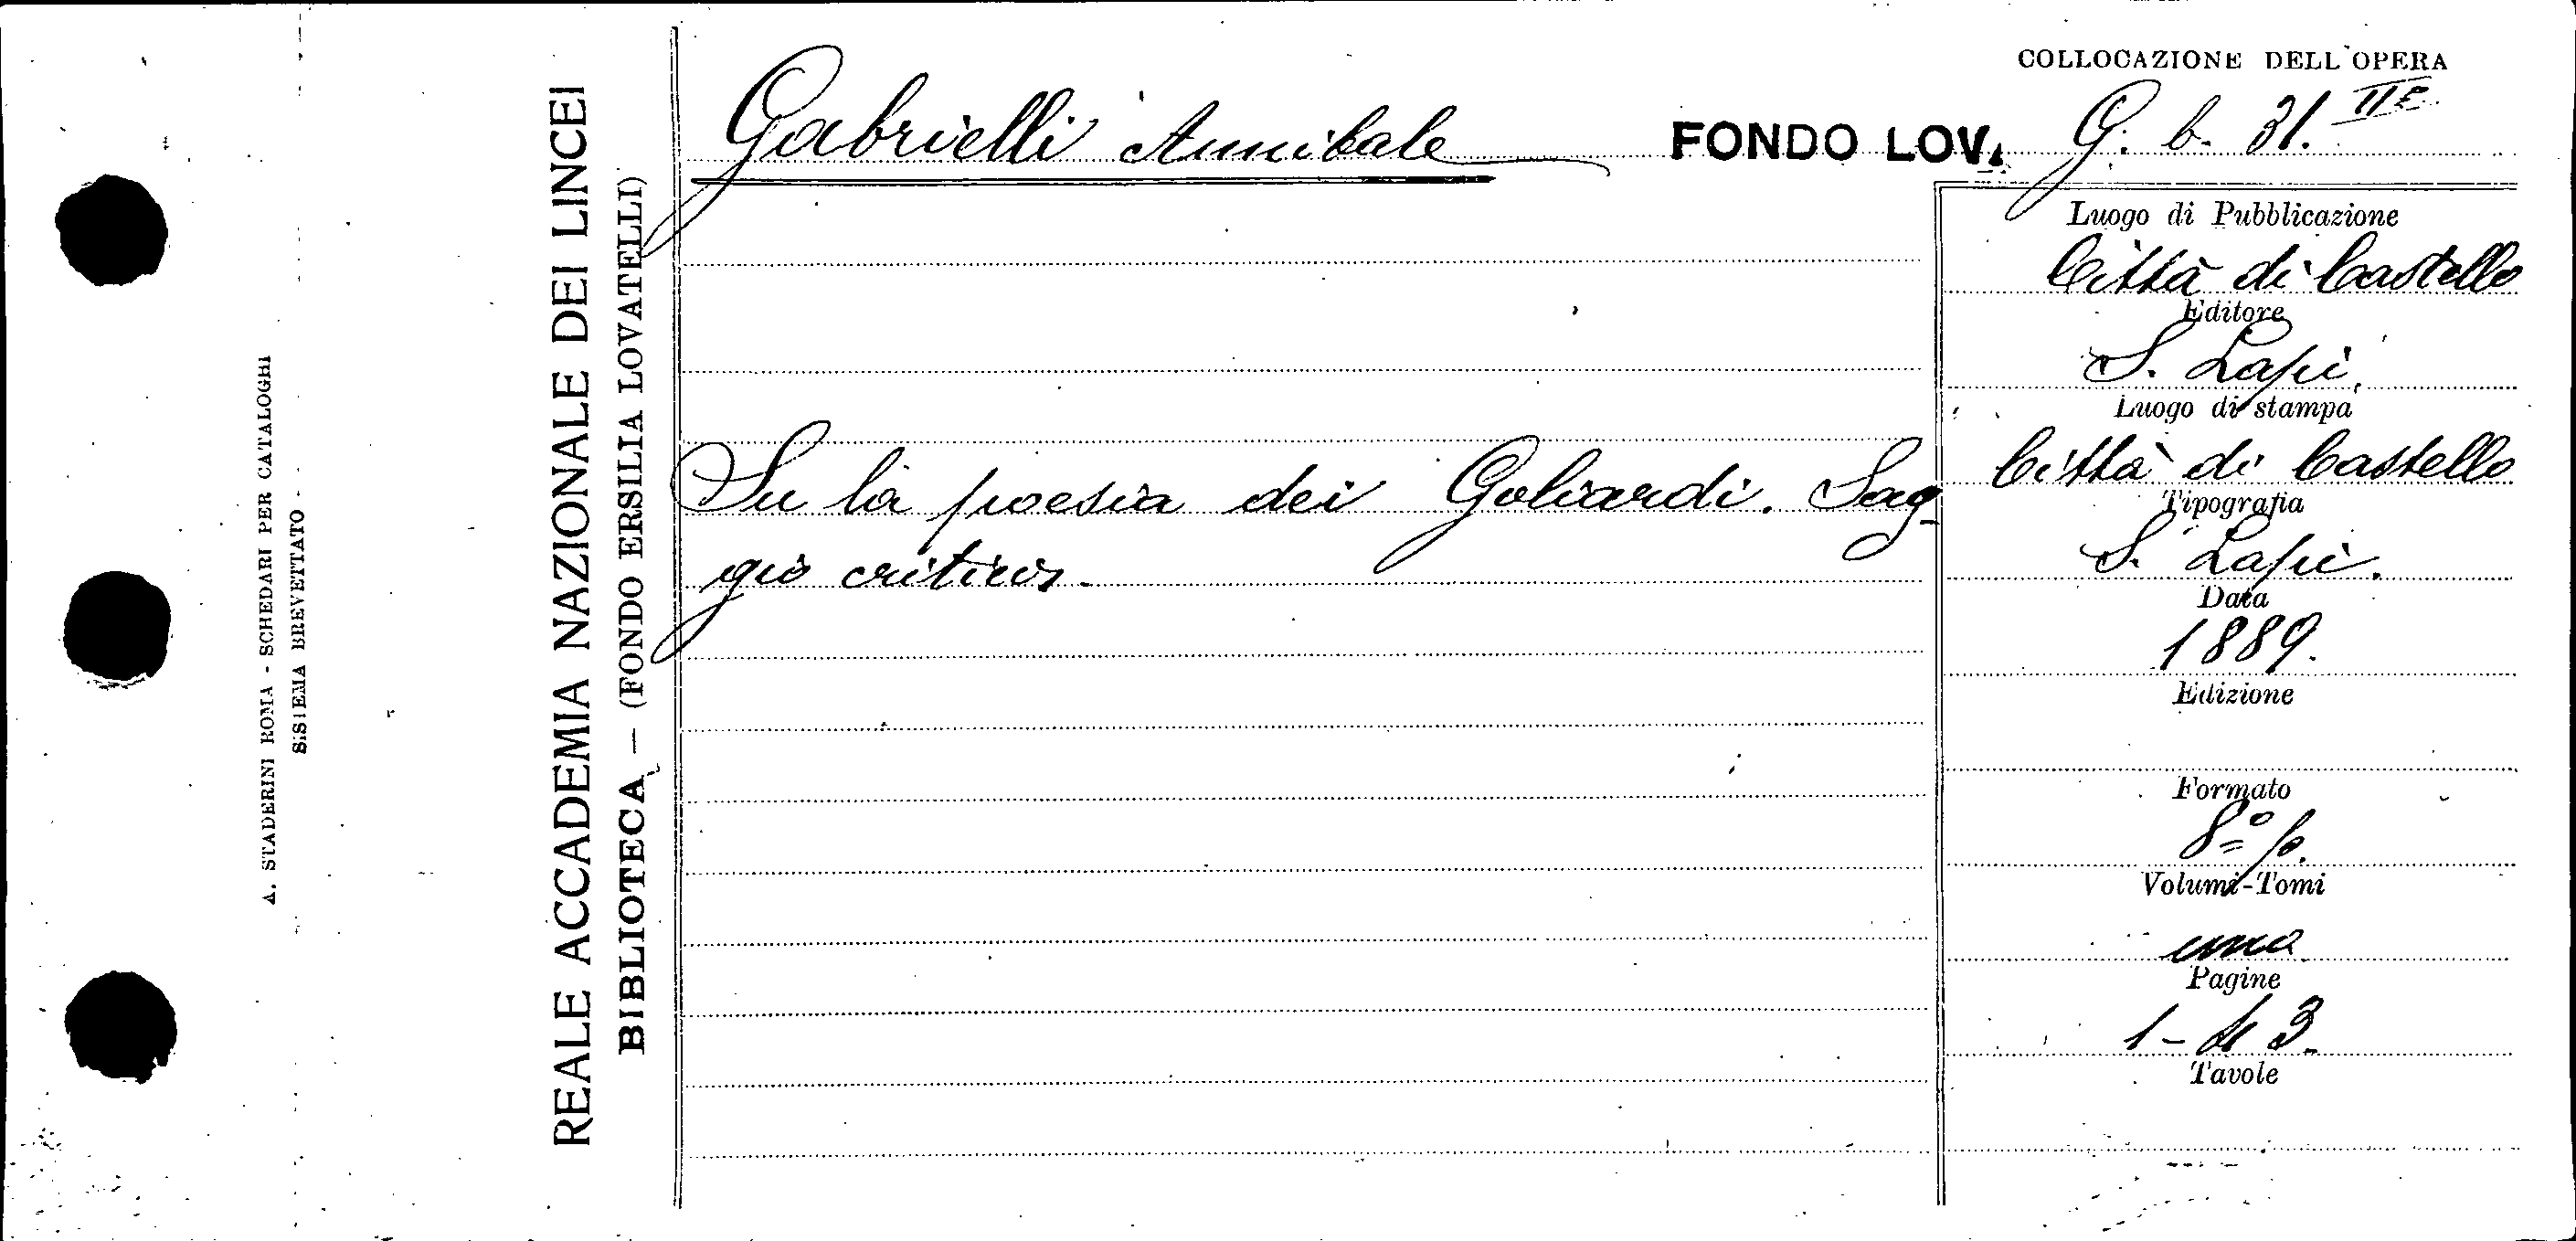 A. STADERINI ROMA - SCHEDARI PER CATALOGHI
SISTEMA BREVETTATO
REALE ACCADEMIA NAZIONALE DEI LINCEI
BIBLIOTECA — (FONDO ERSILIA LOVATELLI)
Gabrielli Annibale
FONDO LOV.
COLLOCAZIONE DELL'OPERA
G. b. 31. II E
Su la poesia dei Goliardi. Sag-
gio critico.
Luogo di Pubblicazione
Città di Castello
Editore
S. Lapi.
Luogo di stampa
Città di Castello
Tipografia
S. Lapi.
Data
1889.
Edizione
Formato
8º p.
Volumi-Tomi
uno
Pagine
Tavole